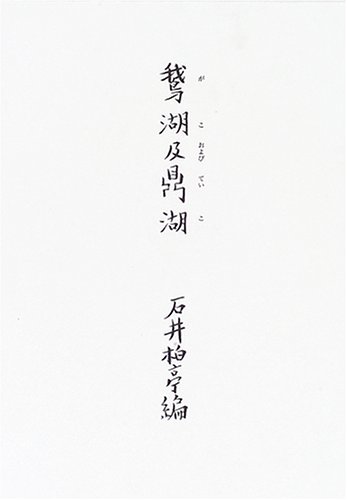 鵞湖及鼎湖
がこおよびていこ
石井柏亭編